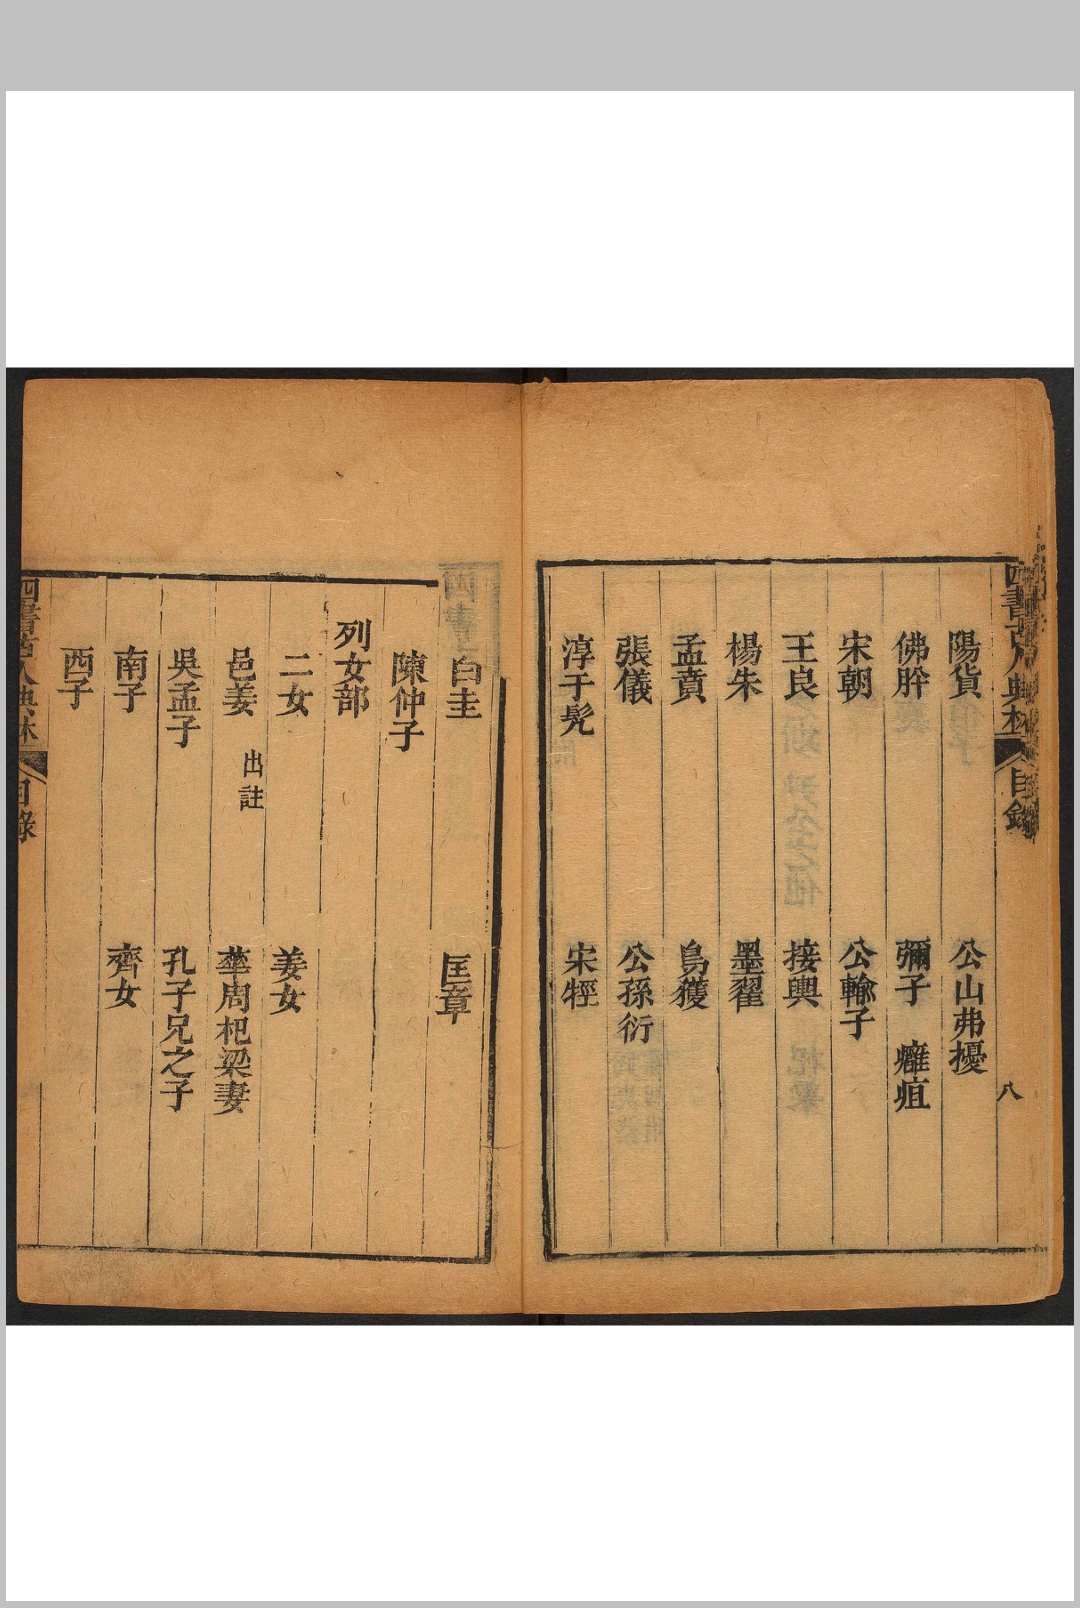 四書古人典林 目錄 八
陽貨 公山弗擾
佛肸 彌子 癰疽
宋朝 公輸子
王良 接輿
楊朱 墨翟
孟賁 烏獲
張儀 公孫衍
淳于髡 宋牼
白圭 匡章
陳仲子
列女部
二女 姜女
邑姜 出註 華周杞梁妻
吳孟子 孔子兄之子
南子 齊女
西子
四書古人典林 目錄